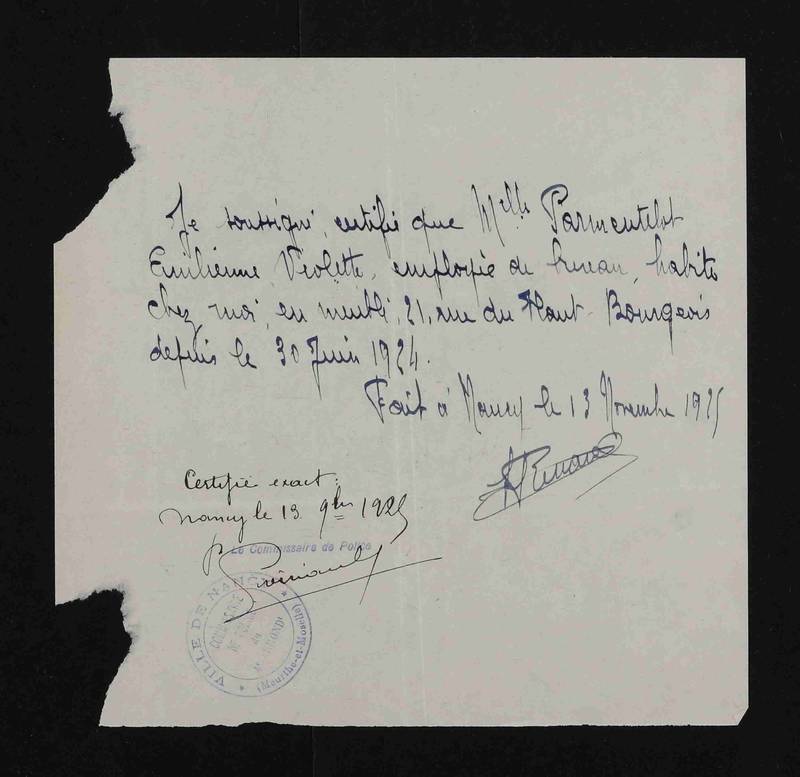 Je soussigné, certifie que Melle Parmentelot
Emilienne, Violette, employée de bureau, habite
chez moi, en meublé, 21, rue du Haut-Bourgeois
depuis le 30 Juin 1924.
Fait à Nancy le 13 Novembre 1925
Certifié exact:
Nancy le 13 9bre 1925
p. Le Commissaire de Police
VILLE DE NANCY
COMMISSARIAT
DE POLICE
du
(Meurthe-et-Moselle)